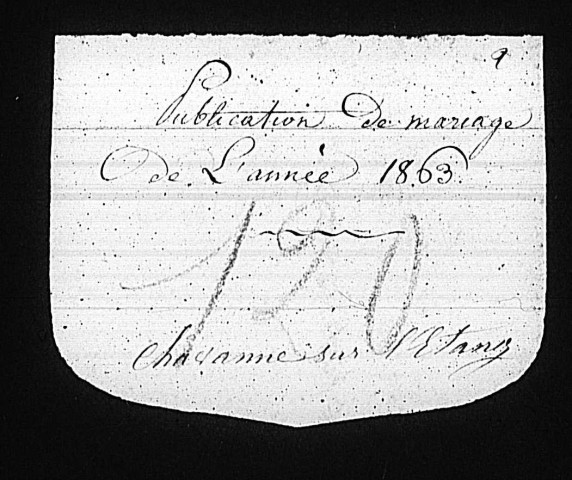 9
Publication de mariage
de L'année 1863
120
Chavanne sur l'Etang